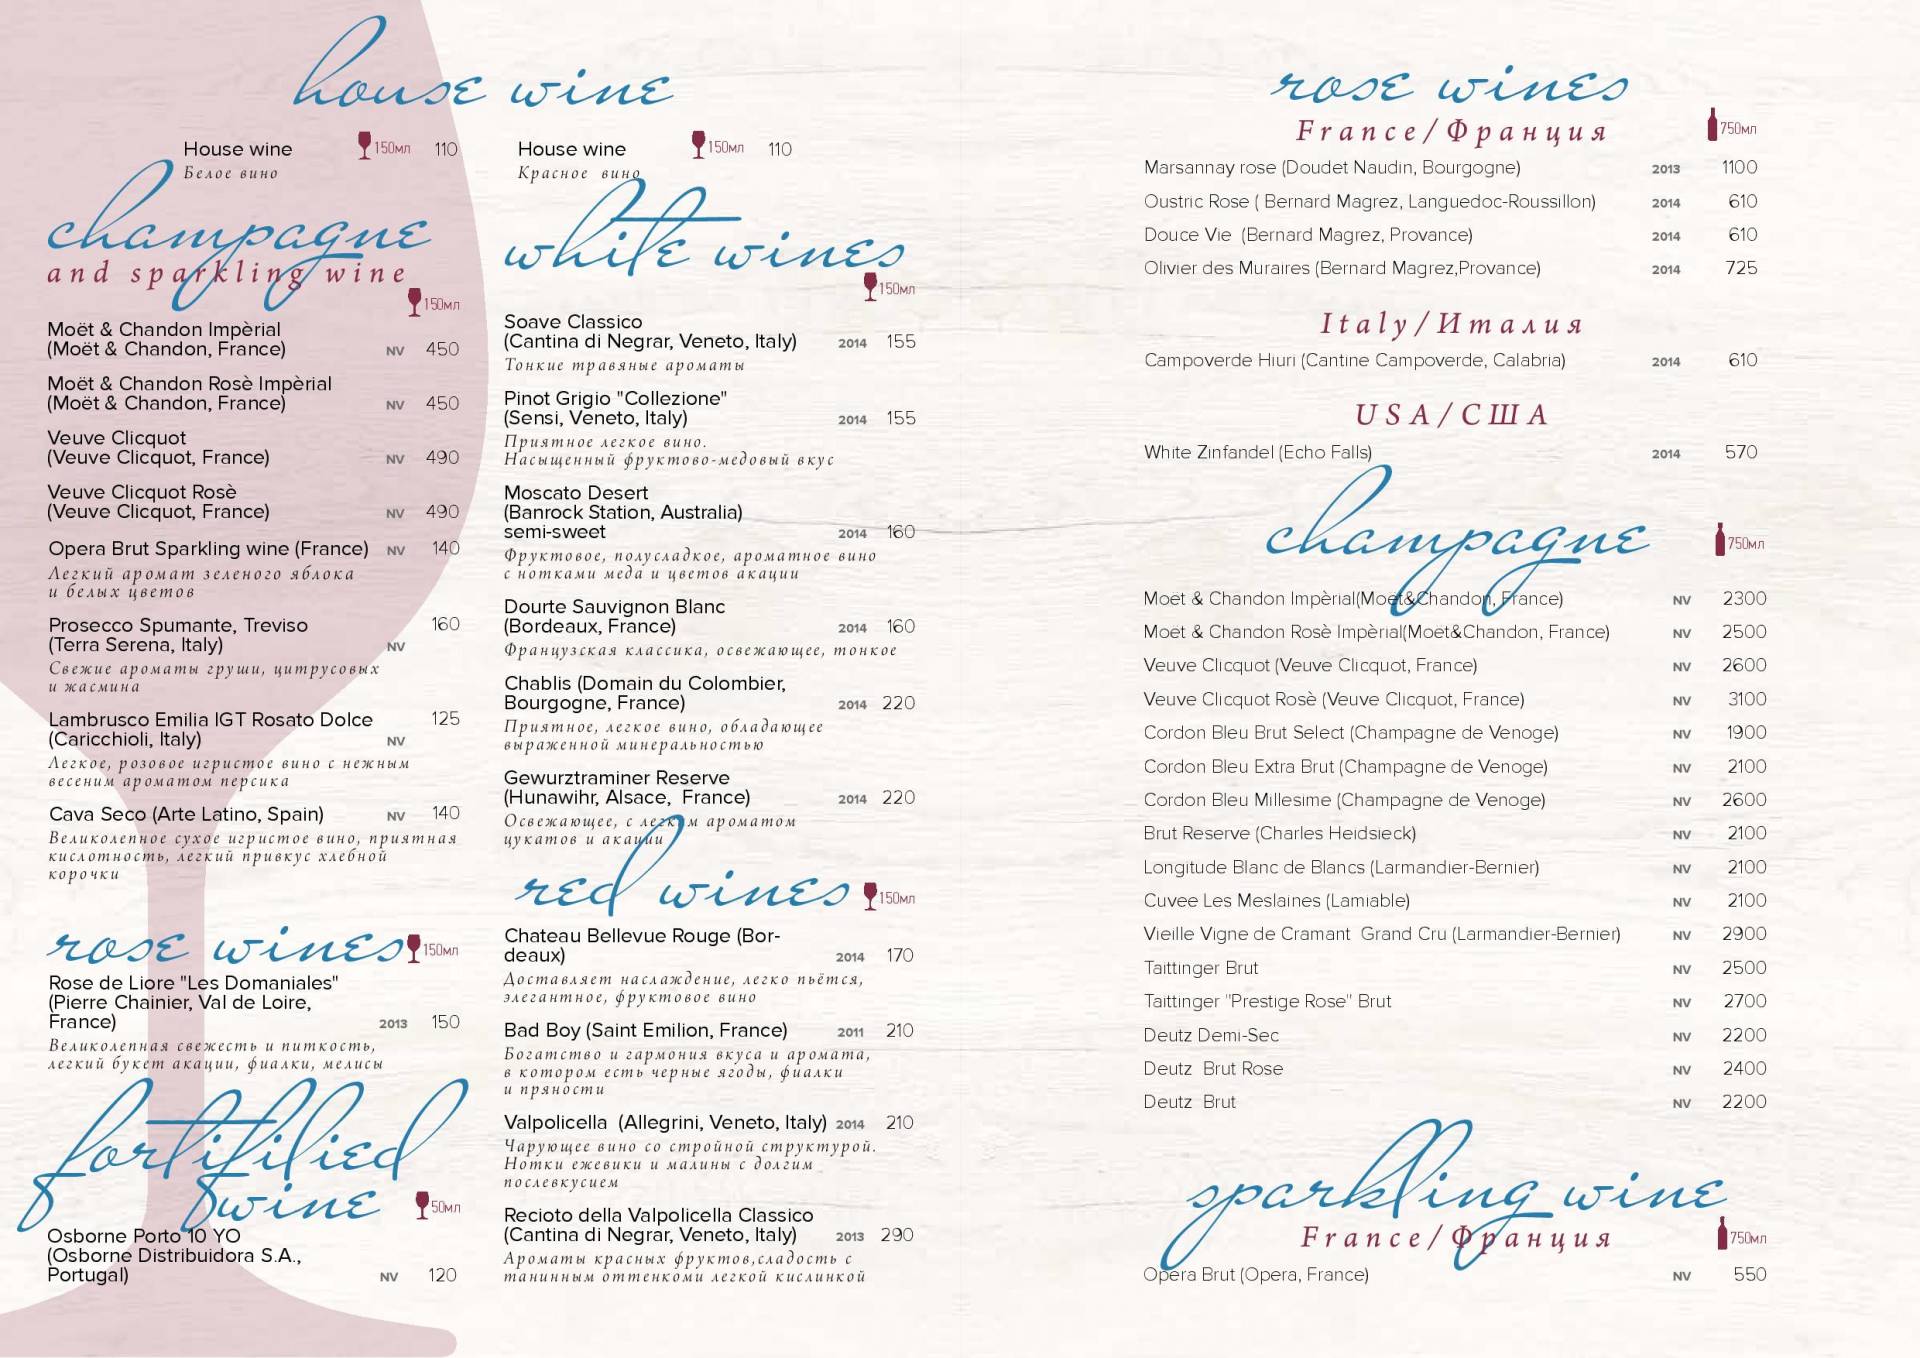 house wine
House wine 150мл 110
Белое вино
House wine 150мл 110
Красное вино
champagne
and sparkling wine
150мл
Moët & Chandon Impèrial
(Moët & Chandon, France) NV 450
Moët & Chandon Rosè Impèrial
(Moët & Chandon, France) NV 450
Veuve Clicquot
(Veuve Clicquot, France) NV 490
Veuve Clicquot Rosè
(Veuve Clicquot, France) NV 490
Opera Brut Sparkling wine (France) NV 140
Легкий аромат зеленого яблока
и белых цветов
Prosecco Spumante, Treviso 160
(Terra Serena, Italy) NV
Свежие ароматы груши, цитрусовых
и жасмина
Lambrusco Emilia IGT Rosato Dolce 125
(Caricchioli, Italy) NV
Легкое, розовое игристое вино с нежным
весеним ароматом персика
Cava Seco (Arte Latino, Spain) NV 140
Великолепное сухое игристое вино, приятная
кислотность, легкий привкус хлебной
корочки
rose wines 150мл
Rose de Liore "Les Domaniales"
(Pierre Chainier, Val de Loire,
France) 2013 150
Великолепная свежесть и питкость,
легкий букет акации, фиалки, мелисы
fortifilied
wine 50мл
Osborne Porto 10 YO
(Osborne Distribuidora S.A.,
Portugal) NV 120
white wines
150мл
Soave Classico
(Cantina di Negrar, Veneto, Italy) 2014 155
Тонкие травяные ароматы
Pinot Grigio "Collezione"
(Sensi, Veneto, Italy) 2014 155
Приятное легкое вино.
Насыщенный фруктово-медовый вкус
Moscato Desert
(Banrock Station, Australia)
semi-sweet 2014 160
Фруктовое, полусладкое, ароматное вино
с нотками меда и цветов акации
Dourte Sauvignon Blanc
(Bordeaux, France) 2014 160
Французская классика, освежающее, тонкое
Chablis (Domain du Colombier,
Bourgogne, France) 2014 220
Приятное, легкое вино, обладающее
выраженной минеральностью
Gewurztraminer Reserve
(Hunawihr, Alsace, France) 2014 220
Освежающее, с легким ароматом
цукатов и акации
red wines 150мл
Chateau Bellevue Rouge (Bor-
deaux) 2014 170
Доставляет наслаждение, легко пьётся,
элегантное, фруктовое вино
Bad Boy (Saint Emilion, France) 2011 210
Богатство и гармония вкуса и аромата,
в котором есть черные ягоды, фиалки
и пряности
Valpolicella (Allegrini, Veneto, Italy) 2014 210
Чарующее вино со стройной структурой.
Нотки ежевики и малины с долгим
послевкусием
Recioto della Valpolicella Classico
(Cantina di Negrar, Veneto, Italy) 2013 290
Ароматы красных фруктов,сладость с
танинным оттенкоми легкой кислинкой
rose wines
France/Франция 750мл
Marsannay rose (Doudet Naudin, Bourgogne) 2013 1100
Oustric Rose ( Bernard Magrez, Languedoc-Roussillon) 2014 610
Douce Vie (Bernard Magrez, Provance) 2014 610
Olivier des Muraires (Bernard Magrez,Provance) 2014 725
Italy/Италия
Campoverde Hiuri (Cantine Campoverde, Calabria) 2014 610
USA/США
White Zinfandel (Echo Falls) 2014 570
champagne 750мл
Moët & Chandon Impèrial(Moët&Chandon, France) NV 2300
Moët & Chandon Rosè Impèrial(Moët&Chandon, France) NV 2500
Veuve Clicquot (Veuve Clicquot, France) NV 2600
Veuve Clicquot Rosè (Veuve Clicquot, France) NV 3100
Cordon Bleu Brut Select (Champagne de Venoge) NV 1900
Cordon Bleu Extra Brut (Champagne de Venoge) NV 2100
Cordon Bleu Millesime (Champagne de Venoge) NV 2600
Brut Reserve (Charles Heidsieck) NV 2100
Longitude Blanc de Blancs (Larmandier-Bernier) NV 2100
Cuvee Les Meslaines (Lamiable) NV 2100
Vieille Vigne de Cramant Grand Cru (Larmandier-Bernier) NV 2900
Taittinger Brut NV 2500
Taittinger "Prestige Rose" Brut NV 2700
Deutz Demi-Sec NV 2200
Deutz Brut Rose NV 2400
Deutz Brut NV 2200
sparkling wine
France/Франция 750мл
Opera Brut (Opera, France) NV 550